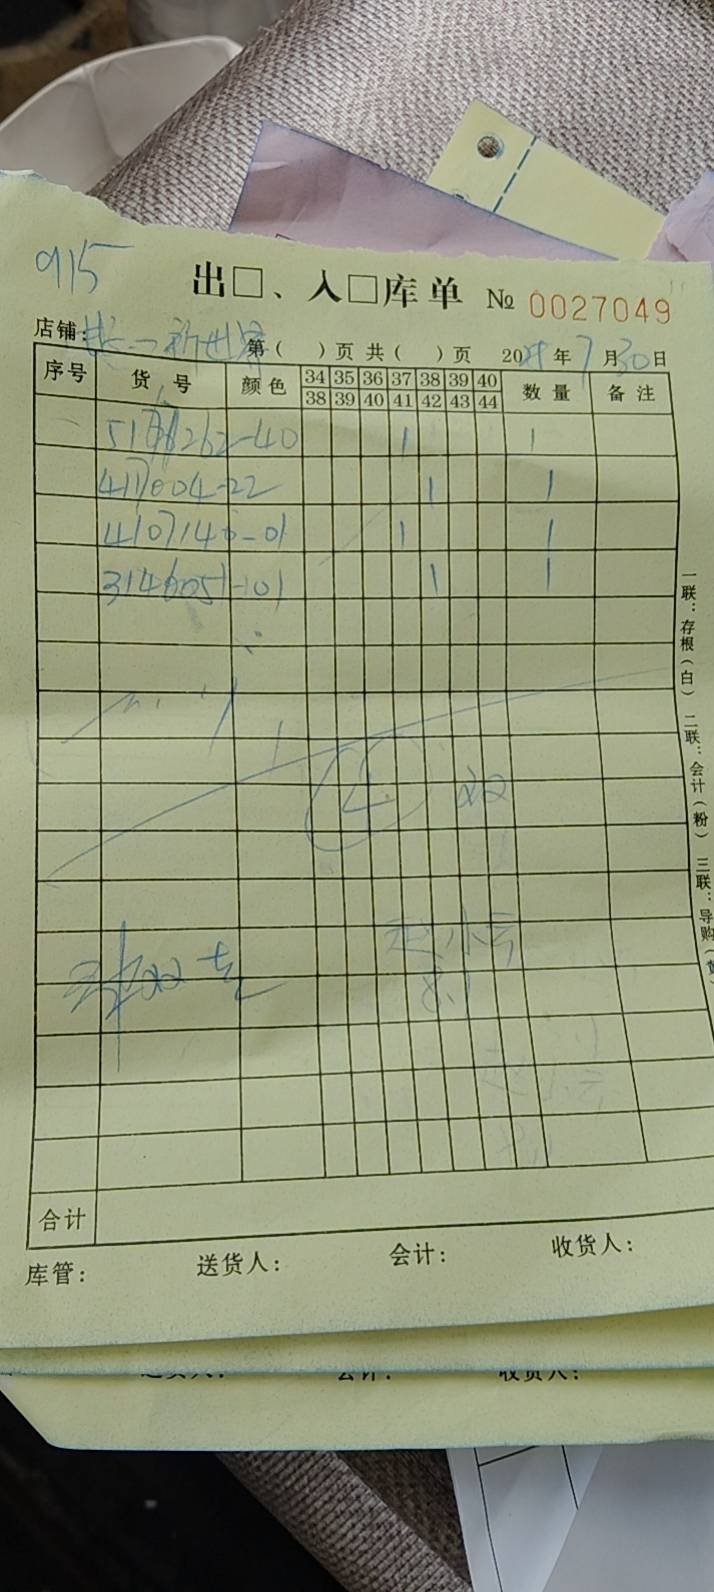 915
出□、入□库单 № 0027049
店铺: 新世界 第( )页 共( )页 20 年 7 月 30 日
序号 货号 颜色 34 35 36 37 38 39 40 数量 备注
38 39 40 41 42 43 44
262-40 1 1
417604-22 1 1
4107140-01 1 1
3146051-101 1 1
4 双
赵小云
8.1
合计
库管: 送货人: 会计: 收货人:
一联:存根(白) 二联:会计(粉) 三联:导购(黄)